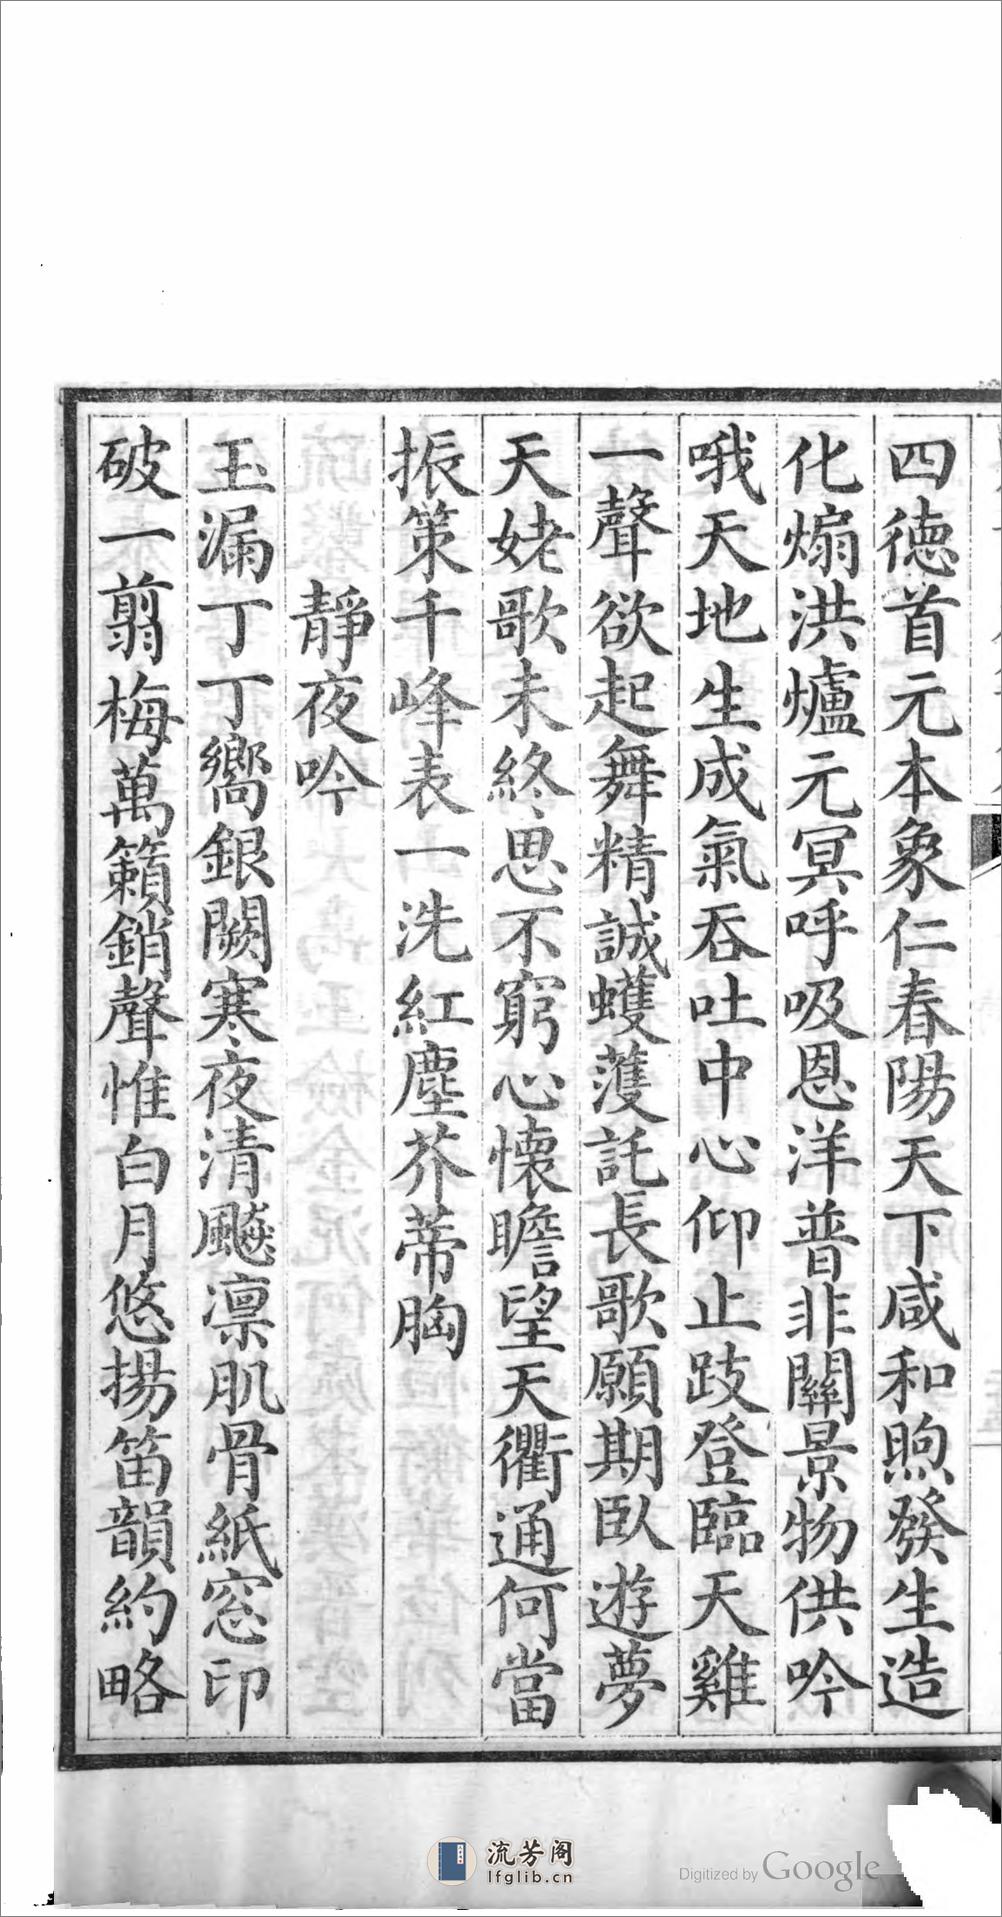 四德首元本象仁春陽天下咸和煦發生造
化煽洪爐元冥呼吸恩洋普非關景物供吟
哦天地生成氣吞吐中心仰止跂登臨天雞
一聲欲起舞精誠蠖蠖託長歌願期臥遊夢
天姥歌未終思不窮心懷瞻望天衢通何當
振策千峰表一洗紅塵芥蒂胸
靜夜吟
玉漏丁丁嚮銀闕寒夜清飈凛肌骨紙窓印
破一翦梅萬籟銷聲惟白月悠揚笛韻約略
流芳阁
lfglib.cn
Digitized by Google